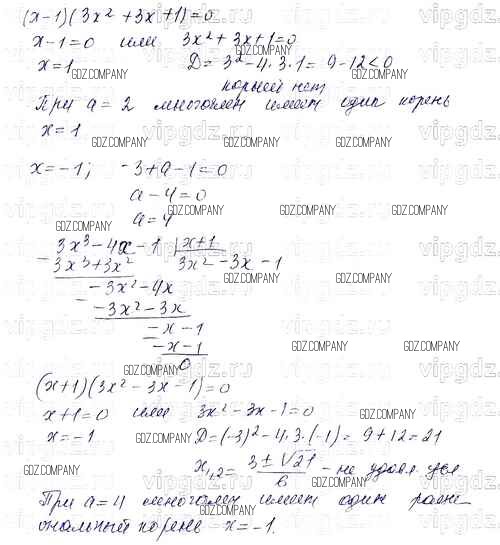 (x-1)(3x² + 3x + 1) = 0
x-1=0 или 3x² + 3x + 1 = 0
x=1 D = 3² - 4·3·1 = 9-12 < 0
корней нет
При a = 2 многочлен имеет один корень
x = 1
x = -1; -3+a-1=0
a-4=0
a=4
3x³ - 4x - 1 | x+1
3x³ + 3x² 3x² - 3x - 1
-3x² - 4x
-3x² - 3x
-x - 1
-x - 1
0
(x+1)(3x² - 3x - 1) = 0
x+1=0 или 3x² - 3x - 1 = 0
x = -1 D = (-3)² - 4·3·(-1) = 9+12 = 21
x₁,₂ = 3 ± √21 / 6 - не удовл.
При a = 4 многочлен имеет один рацио-
нальный корень x = -1.
GDZ.COMPANY
vipgdz.ru